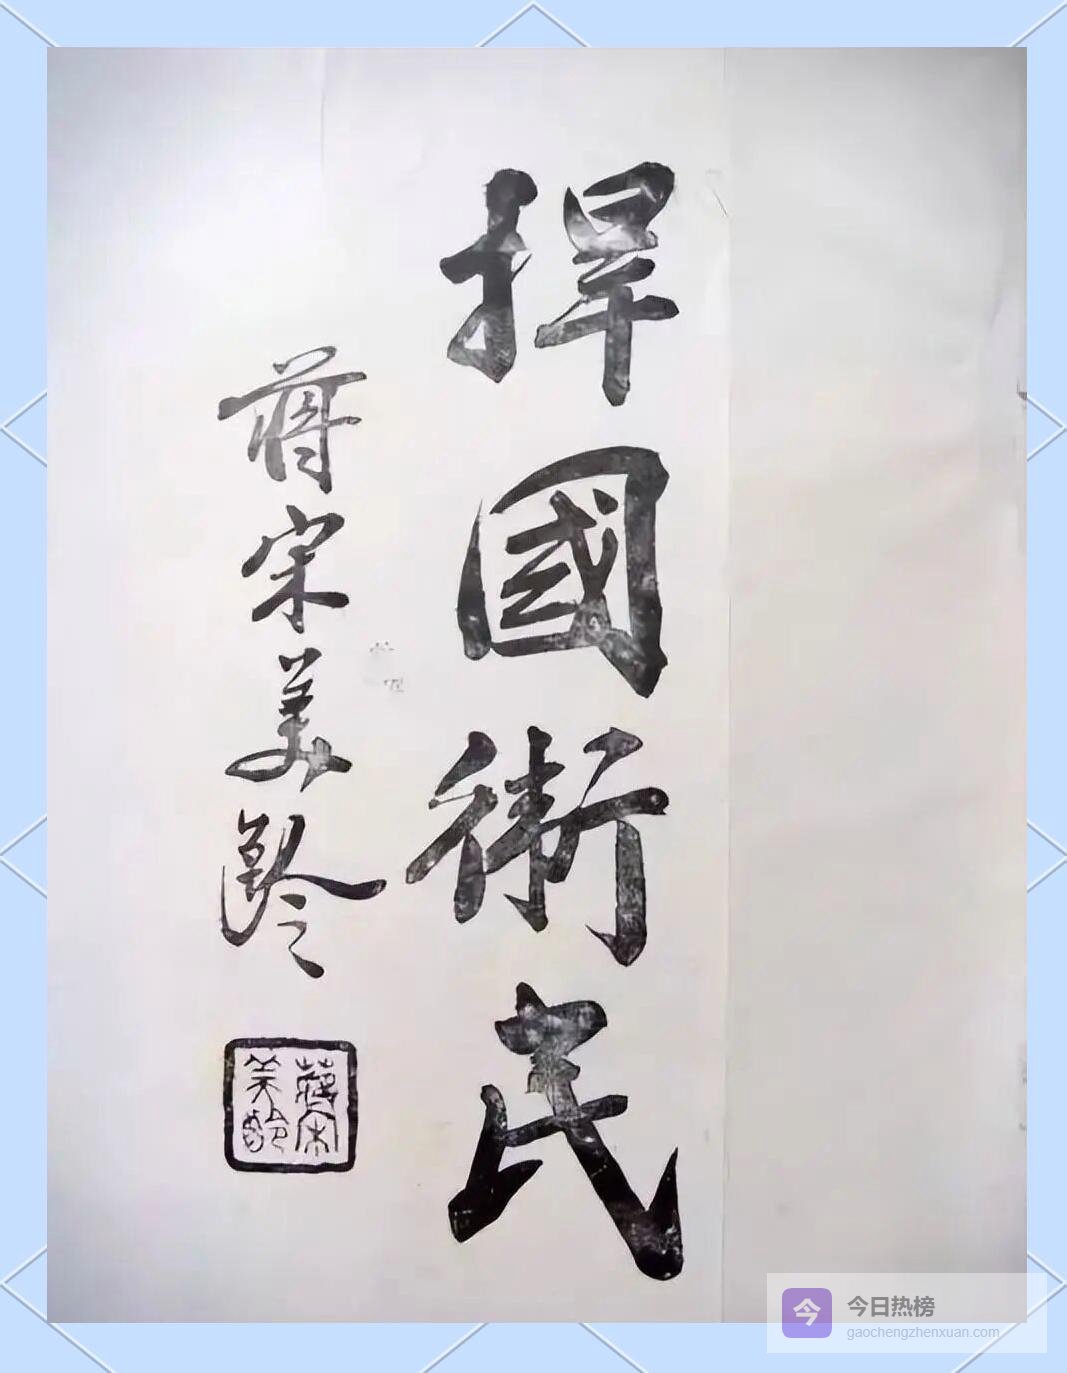 捍國衛民
蔣宋美齡
蔣宋
美齡
今
今日热榜
gaochengzhenxuan.com